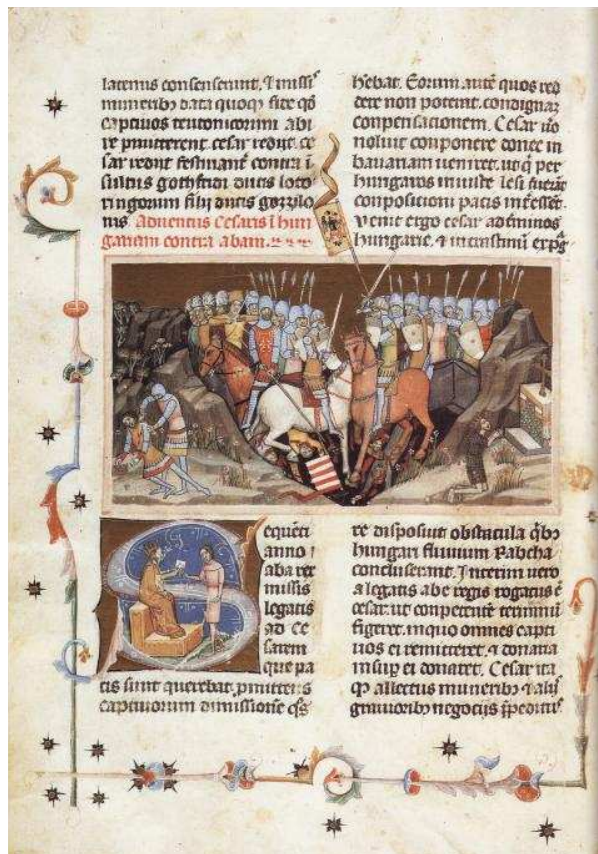 latenus consenserunt. ⁊ missis
muneribꝫ data quoqꝫ fide qď
captiuos teutonicorum abi
re pmitterent cesar redijt. ce
sar redijt festinant᷑ contra ī
sultus gothfridi ducis loto
ringorum filij ducis gozzilo
nis Aduentus Cesaris ī hun
gariam contra abam.
Sequēti
anno
aba rex
missis
legatis
ad Ce
sarem
que pa
cis sunt querebat. pmittens
captiuorum dimissionē
hēbat. Eorum autē quos red
dere non poterat. condignaꝫ
conpensacionem. Cesar ůo
noluit conponere donec in
bauariam ueniret. ut q per
hungaros iniuste lesi fuerāt
conpositioni pacis intēssent.
Venit ergo cesar ad terminos
hungarie. ⁊ in crastinū
re disposuit obstacula qͥbꝫ
hungari fluuium Rabcha
concluserant. Interim uero
a legatis abe regis rogatus ē
cesar. ut conpetentē terminū
figeret. in quo omnes capti
uos ei remitteret. ⁊ donaria
insuꝑ ei donaret. Cesar ita
qꝫ allectus muneribꝫ ⁊ alijs
grauioribꝫ negocijs īpeditus